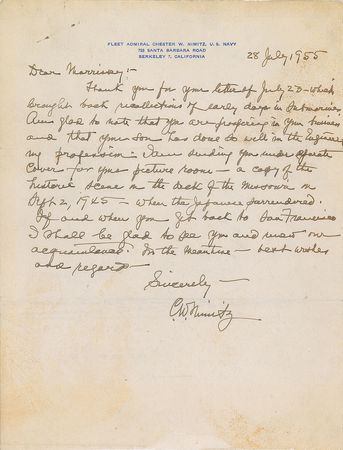 FLEET ADMIRAL CHESTER W. NIMITZ, U. S. NAVY
728 SANTA BARBARA ROAD
BERKELEY 7, CALIFORNIA
28 July 1955
Dear Morrissey:-
Thank you for your letter of July 23 - which
brought back recollections of early days in Submarines
Am glad to note that you are prospering in your business
and that your son has done so well in the Engineer-
ing profession. I am sending you under separate
cover - for your picture room - a copy of the
historic scene on the deck of the Missouri on
Sept 2, 1945 - when the Japanese surrendered.
If and when you get back to San Francisco
I shall be glad to see you and renew our
acquaintance. In the meantime - best wishes
and regards
Sincerely -
C.W. Nimitz